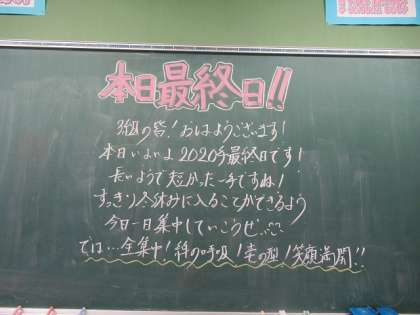 本日最終日!!
3組の皆!おはようございます!
本日いよいよ2020年最終日です!
長いようで短かった一年ですね!
すっきり冬休みに入ることができるよう
今日一日集中していこうぜ
では…全集中!絆の呼吸!壱の型!笑顔満開!!